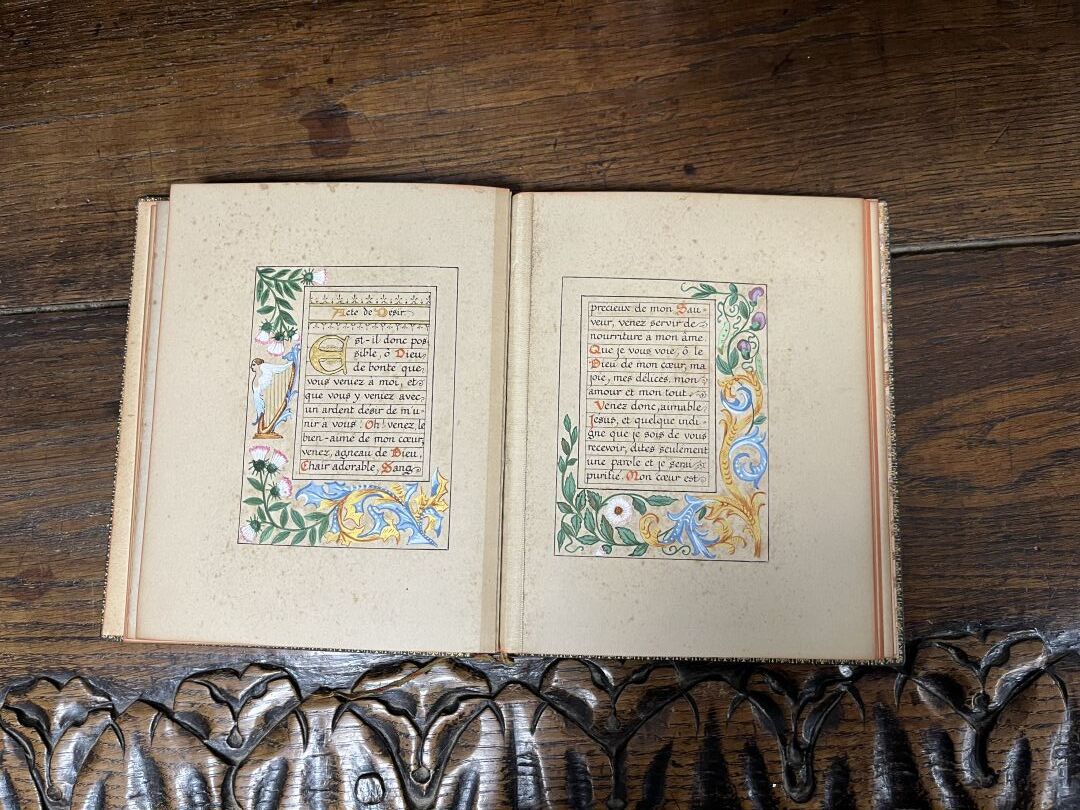 Acte de Desir
Est-il donc pos
sible, ô Dieu
de bonte que
vous veniez à moi, et
que vous y veniez avec
un ardent desir de m'u-
nir a vous! Oh! venez, le
bien-aimé de mon cœur,
venez, agneau de Dieu,
Chair adorable, Sang
precieux de mon Sau-
veur, venez servir de
nourriture a mon ame.
Que je vous voie, ô le
Dieu de mon cœur, ma
joie, mes délices, mon
amour et mon tout.
Venez donc, aimable
Jesus, et quelque indi-
gne que je sois de vous
recevoir, dites seulement
une parole et je serai
purifié. Mon cœur est